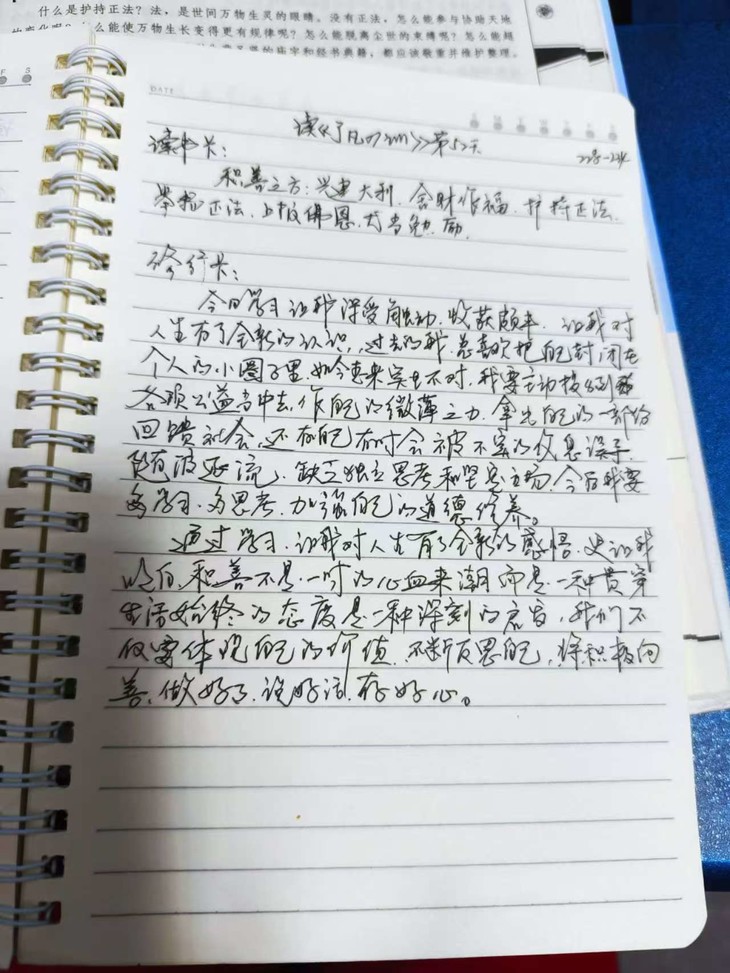 什么是护持正法？法，是世间万物生灵的眼睛。没有正法，怎么能参与协助天地
么能使万物生长变得更有规律呢？怎么能脱离尘世的束缚呢？怎么能超
的庙宇和经书典籍，都应该敬重并维护整理。
DATE
读《了凡四训》第52天
读书卡：
积善之方：兴建大利，舍财作福，护持正法，
举 正法，上报佛恩，尤当勉励。
修行卡：
今日学习让我深受触动，收获颇丰，让我对
人生有了全新的认识，过去的我，总喜欢把自己封闭在
个人的小圈子里，如今想来实在不对，我要主动接
各项公益当中去，作自己的微薄之力，拿出自己的一部份
回馈社会，还有自己有时会被不实的信息误导，
随波逐流，缺乏独立思考和坚定立场，今后我要
多学习，多思考，加强自己的道德修养。
通过学习，让我对人生有了全新的感悟，更让我
明白，积善不是一时的心血来潮而是一种贯穿
生活始终的态度是一种深刻的 ，我们不
仅要体现自己的价值，不断反思自己，将积极向
善，做好事，说好话，存好心。